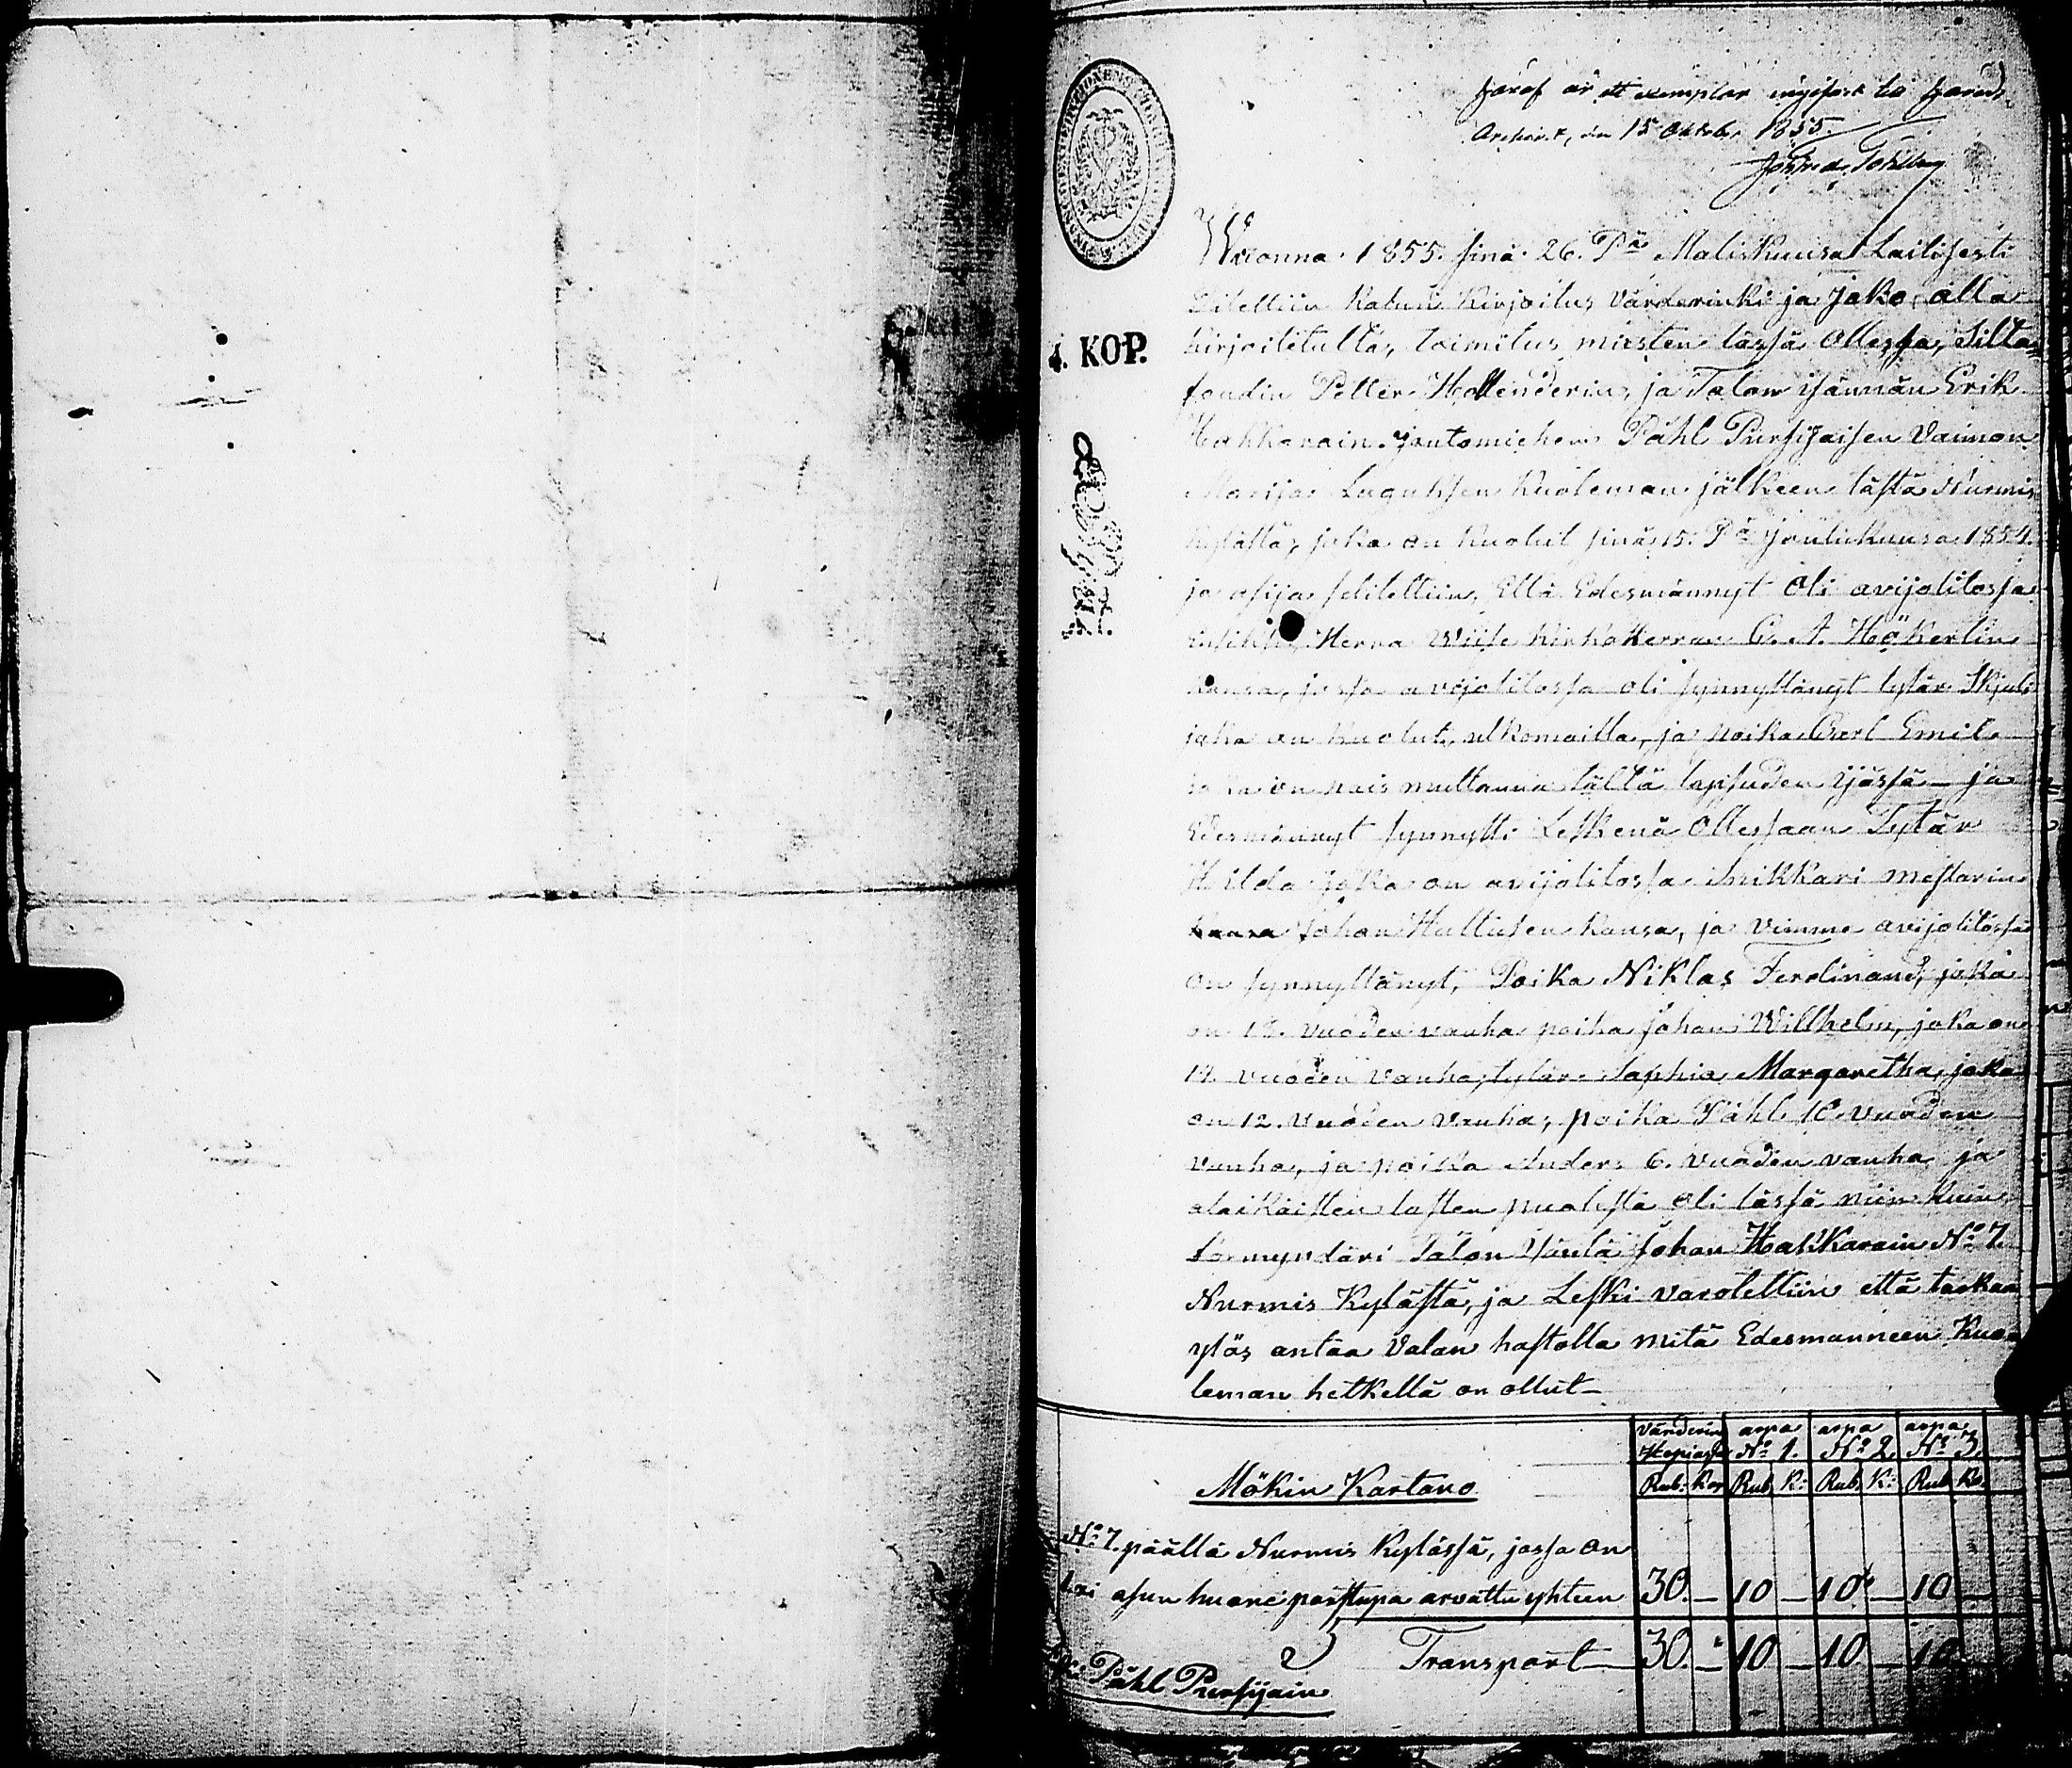 Häraf är ett exemplar ingifvet till Härads
Archivet, den 15 Oktober 1855.
Wuonna 1855 sinä 26. Pä Maliskuusa Lailisesti
Pitettiin Kalun Kirjoitus Värderinki ja Jako, alla
kirjoitetulta, toimitus miesten läsfä Ollesfa, Silta
foudin Petter Hollenderin, ja Talon isännän Erik
Hakkarain. Joutomiehen Påhl Pursijaisen Vaimon
Marija Laguksen Kuoleman jälkeen tästä Nurmis
kylältä, joka on kuolut sinä 15. Pä Joulukuusa 1854.
ja asija selitettiin, Että Edesmännyt Oli avijolitosfa
ensiksi Herra Wiise Kirkoherran C. A. Hökertin
kansa, josfa avijolitosfa oli synnyttänyt tytär
joka on kuolut, ulkomailla, ja poika Carl Emil
joka on pois muttanna tältä lapsuden ijäsfä – ja
Edesmännyt synnytti Leskenä Ollesfaan Tytär
Hilda joka on avijolitosfa Snikkari mestarin
kansa Johan Hultisen kansa, ja viimme avijolitosfa
on synnyttänyt, Poika Niklas Ferdinand, joka
on vuoden vanha poika Johan Willhelm, joka on
14. vuoden vanha, tytär Saphia Margaretha, joka
on 12. vuoden vanha, poika Påhl 10. vuoden
vanha, ja poika Anders 6. vuoden vanha ja
alaikäisten lasten puolesta oli läsfä niin kuin
förmyndäri Talon Isäntä Johan Hakkarain No 7
Nurmis Kylästä, ja Leski varotettiin että tarkaan
ylös antaa Valan hastolla mitä Edesmanneen Kuo
leman hetkellä on ollut –
4. KOP.
Värderin arpa arpa arpa
Hopiasfa No 1. No 2. No 3.
Rub: Kop Rub K: Rub K: Rub Ko.
Mökin Kartano
No 7. päällä Nurmis Kylässä, jossa on
1xi asun huone pörstupa arvattu yhteen 30. – 10 – 10 – 10 –
Transport 30. – 10 – 10 – 10
Påhl Pursijain